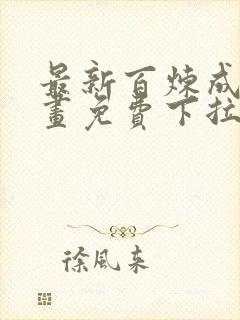 最新百炼成
畫免費下拉
徐風来